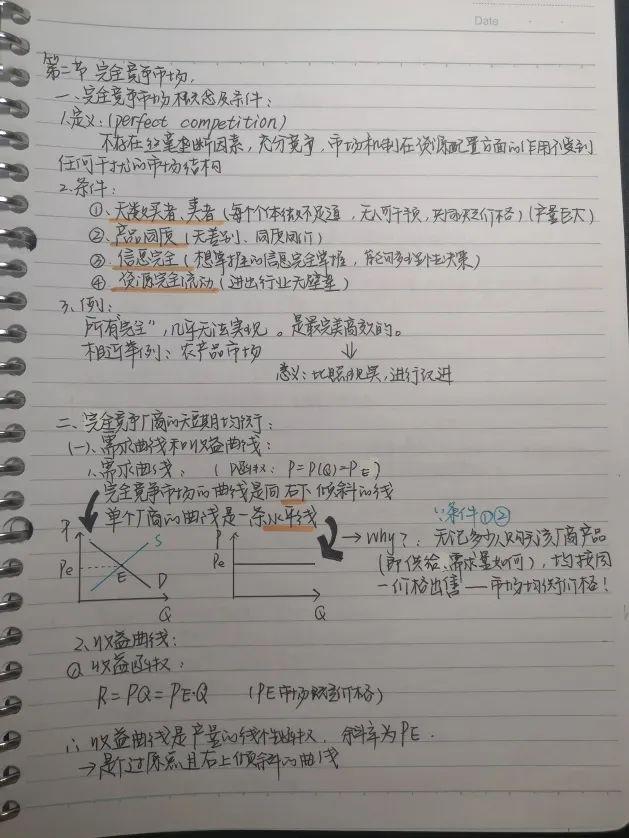 Date
第二节 完全竞争市场.
一、完全竞争市场概念及条件:
1.定义:(perfect competition)
不存在丝毫垄断因素,充分竞争,市场机制在资源配置方面的作用不受到
任何干扰的市场结构
2.条件:
①、大量买者、卖者(每个个体微不足道,无人可干预,共同决定价格)(产量巨大)
②、产品同质(无差别、同质同价)
③ 信息完全(想掌握的信息完全掌握,能可多到作出决策)
④ 资源完全流动(进出行业无壁垒)
3、例:
所有"完全",几乎无法实现。是最完美高效的。
相近举例:农产品市场
⇓
意义:比照现实,进行改进
二、完全竞争厂商的短期均衡:
(一)、需求曲线和收益曲线:
1、需求曲线:(D函数:P=P(Q)=PE)
完全竞争市场的曲线是向右下倾斜的线
单个厂商的曲线是一条水平线
∵条件①②
→Why?:无论多少人购买该厂商产品
(即供给、需求量如何),均按同
一价格出售——市场均衡价格!
P
Pe
S
E
D
Q
P
Pe
Q
2、收益曲线:
① 收益函数:
R=PQ=PE·Q (PE市场既定价格)
∴ 收益曲线是产量的线性函数,斜率为PE.
→是个过原点且右上倾斜的曲线